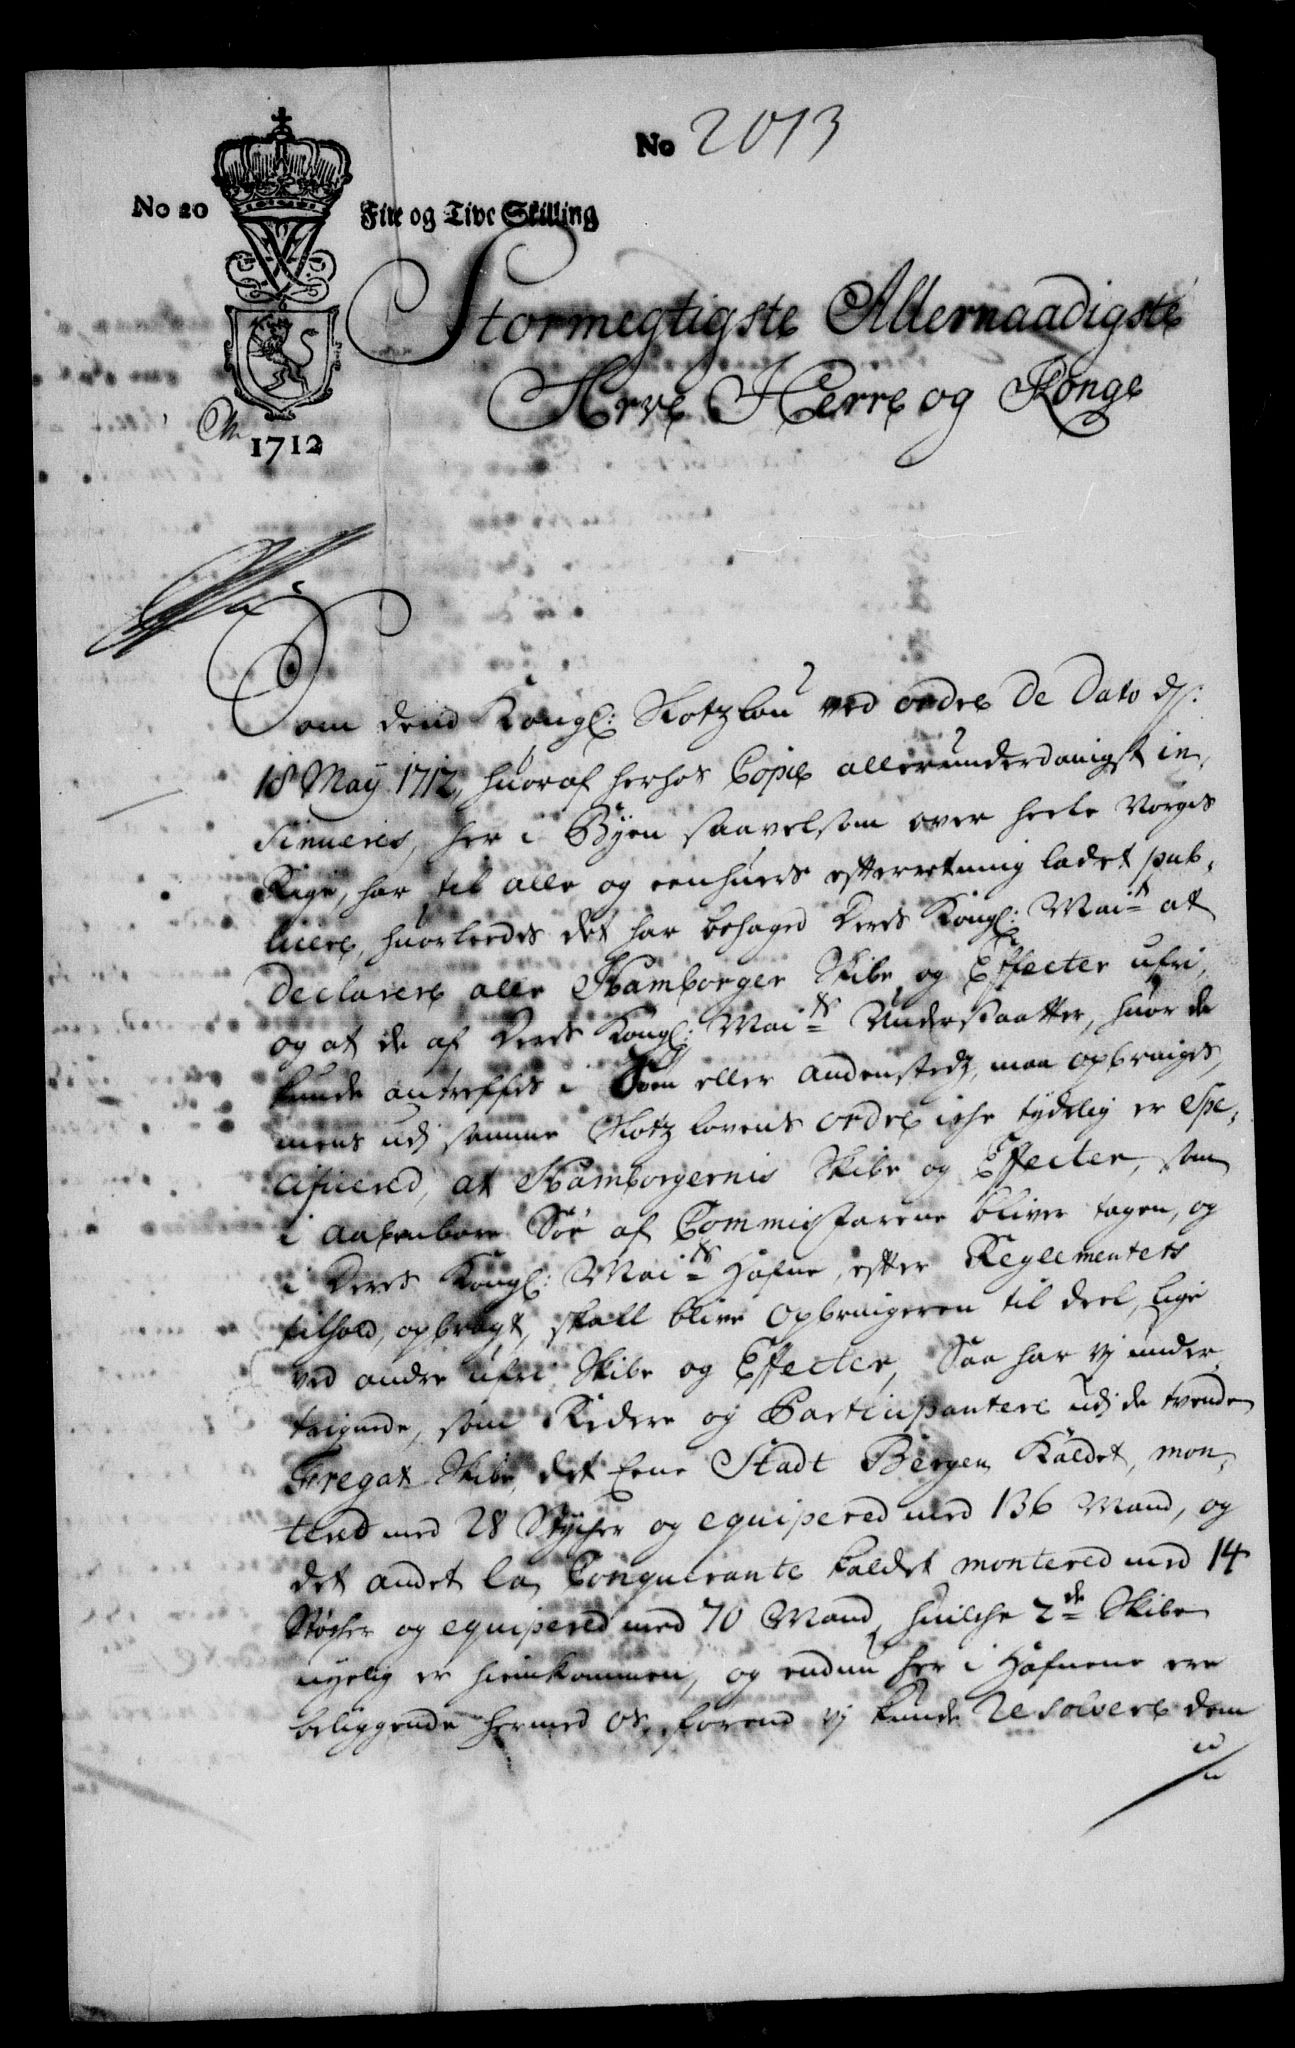 No 2013
No 20 Fire og Tive Skilling
1712
Stormegtigste Allernaadigste
Arve Herre og Konge
Som dend Kongl: Slotzlou ved ordre De Dato d:
18 May 1712, huoraf herhos Copie allerunderdanigst in,
sinueris, her i Byen saavelsom over heele Norges
Rige, har til alle og eenhuers efterretning ladet pub,
licere, huorleedes det har behaged Deris Kongl: Mai:ts at
Declarere alle Hamborger Skibe og Effecter ufri,
og at de af Deris Kongl: Mai:ts Undersaatter, huor de
kunde antreffes i Søen eller andenstedz, maa opbringes,
mens udj samme Slotzlovens ordre iche tydelig er spe,
cificered, at Hamborgernis Skibe og Effecter, som
i aabenbare Søe af Commissfarene bliver tagen, og
i Deris Kongl: Mai:ts Hafne, efter Reglementets
tilhold, opbragt, skall blive Opbringeren til deel, lige
ved andre ufri Skibe og Effecter, Saa har vj under,
tegnede, som Redere og Participantere udj de tvende
Fregat Skibe, det Eene Stadt Bergen Kaldet, mon,
tered med 28 Stycher og equipered med 136 Mand, og
det andet la Conquerante kaldet montered med 14
Stycher og equipered med 70 Mand, huilche 2de Skibe
nyelig er hiemkommen, og endnu her i Hafnene ere
beliggende hermed os, førend vj kunde Resolvere dem